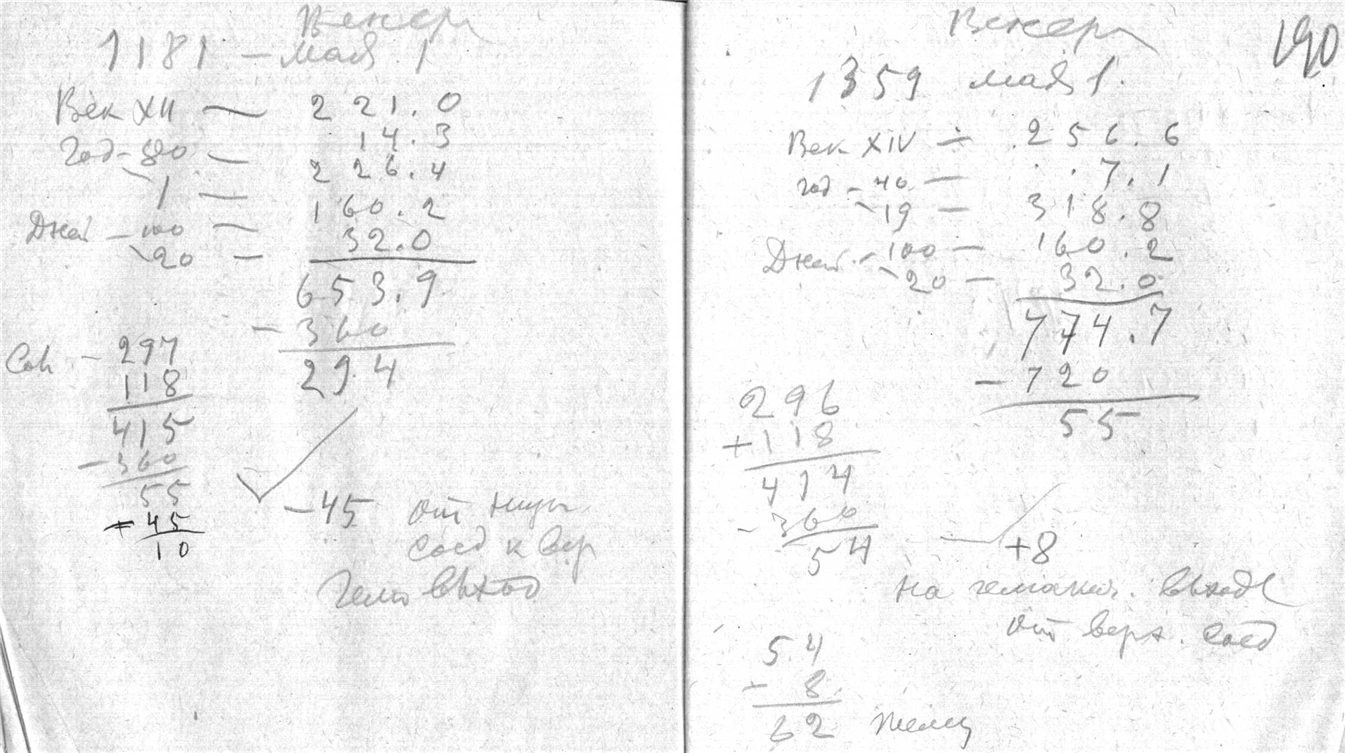 Венера
1181 – мая 1
Век XII — 221.0
Год – 80 — 14.3
1 — 226.4
Дней – 100 — 160.2
20 — 32.0
653.9
– 360
294
297
118
415
– 360
55
45
10
– 45 от нижн.
соед к вер
Гели выход
190
Венера
1359 мая 1.
Век XIV — 256.6
год – 40 — 7.1
19 — 318.8
Дней – 100 — 160.2
20 — 32.0
774.7
– 720
55
296
+118
414
– 360
54
+8
на гелиакич. выходе
от верх. соед
54
– 8
62